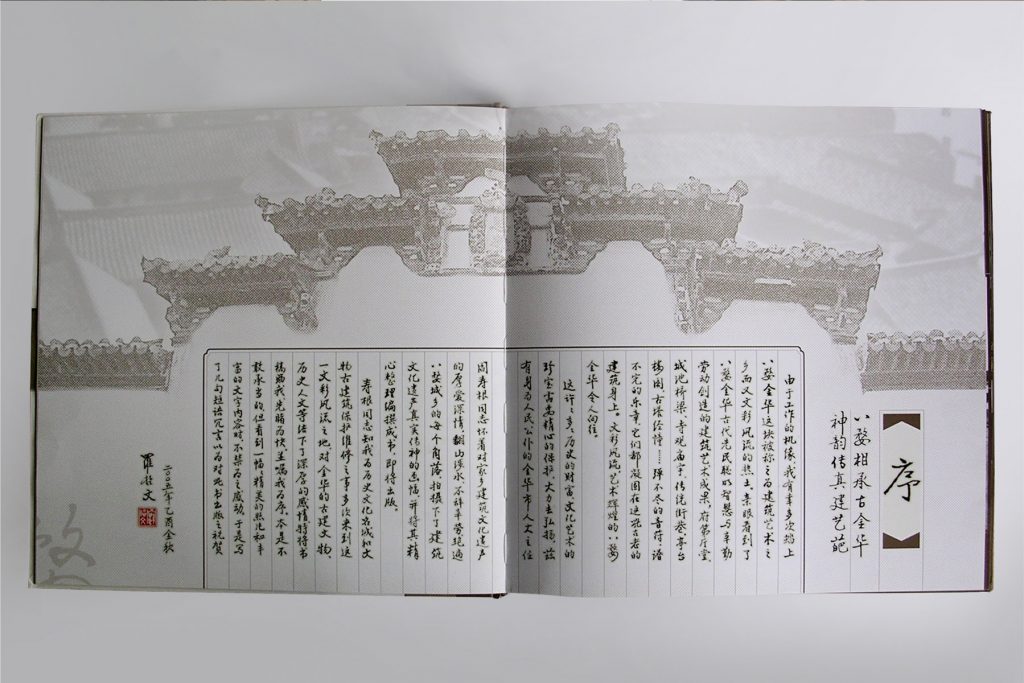 序
八婺相承古金华
神韵传真建艺葩
由于工作的机缘,我有幸多次踏上
八婺金华这块被称之为建筑艺术之
乡而又文彩风流的热土。亲眼看到了
八婺金华古代先民聪明智慧与辛勤
劳动创造的建筑艺术成果,府第厅堂、
城池桥梁、寺观庙宇、传说街巷、亭台
楼阁、古塔经幢……弹不尽的音符谱
不完的乐章,它们都凝固在这児古老的
建筑身上。文彩风流,艺术辉煌的八婺
金华令人向往。
这许许多多历史的财富,文化艺术的
珍宝需要精心的保护,大力去弘扬,兹
有身为人民公仆的金华市人大主任
周寿根同志怀着对家乡建筑文化遗产
的厚爱深情,翻山涉水,不辞辛劳跑遍
八婺城乡的每个角落,拍摄下了建筑
文化遗产真实传神的画幅,并将其精
心整理编撰成书,即将出版。
寿根同志知我为历史文化名城和文
物古建筑保护维修之事多次来到这
一文彩风流之地,对金华的古建文物、
历史人文等结下了深厚的感情,特将书
稿画我先睹为快,并嘱我为序,本是不
敢承当的,但看到一幅幅精美的照片和丰
富的文字内容时,不禁为之感动,于是写
了几句短语冗言以为对此书出版之祝贺
二〇〇五年乙酉金秋
罗哲文